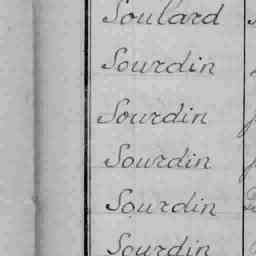 Soulard
Sourdin
Sourdin
Sourdin
Sourdin
Sourdin